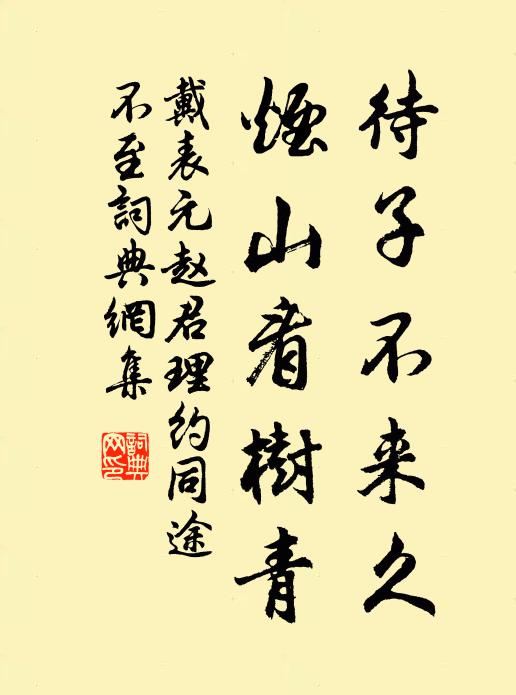 待子不来久
煙山看樹青
戴表元赵君理约同途
不至詞典網集
詞典網印